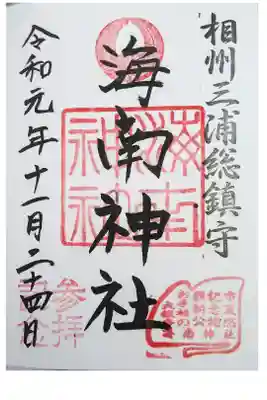 相州三浦総鎮守
海南神社
海南神社
参拝
令和元年十一月二十四日